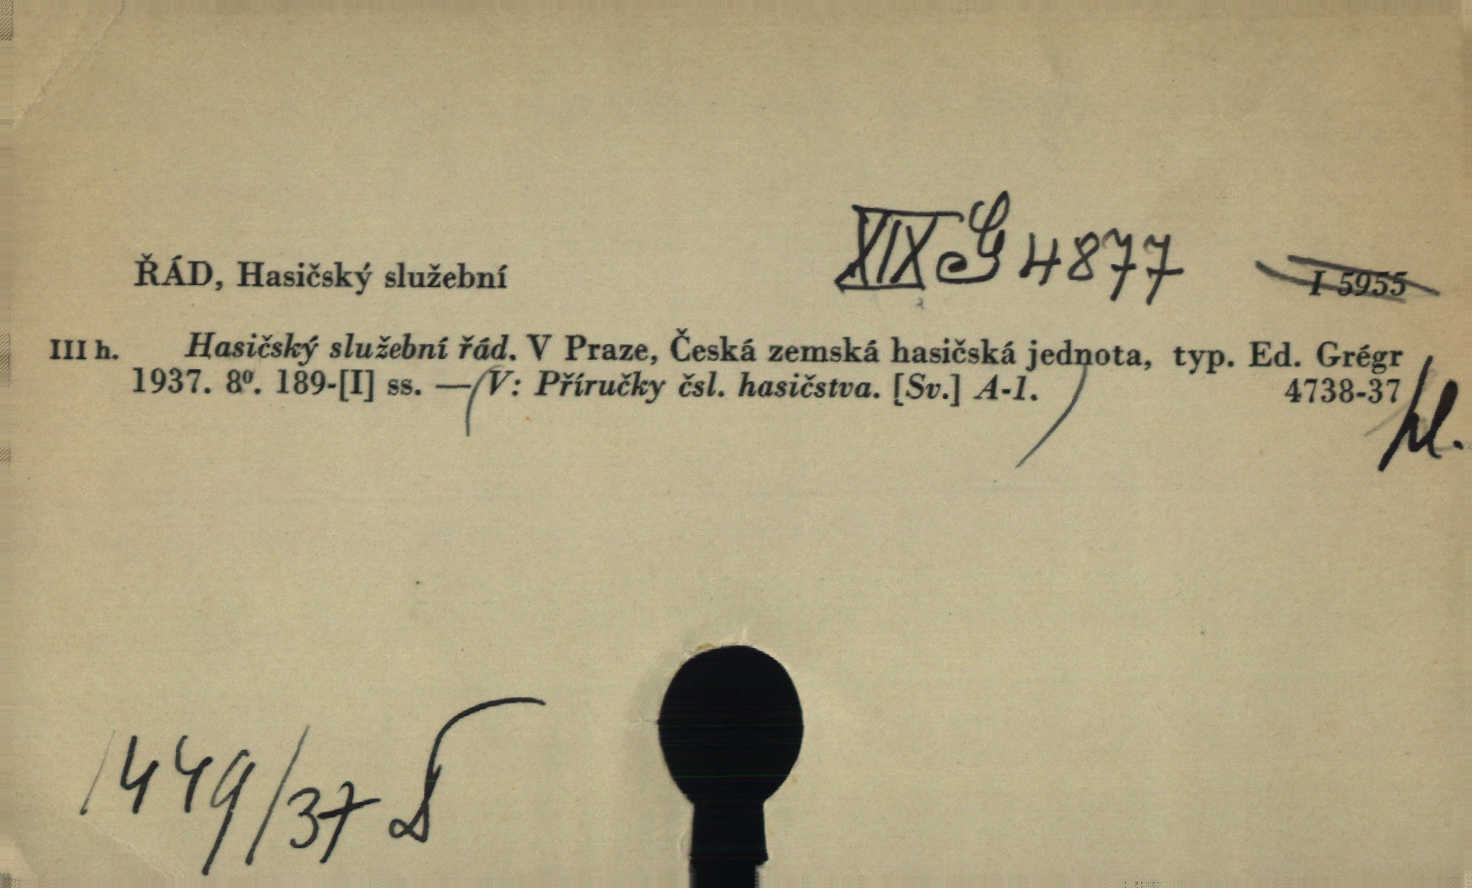 XIX G 4877
ŘÁD, Hasičský služební I 5955
III h. Hasičský služební řád. V Praze, Česká zemská hasičská jednota, typ. Ed. Grégr
1937. 8⁰. 189-[I] ss. — (V: Příručky čsl. hasičstva. [Sv.] A-1.) 4738-37
1449/37 D